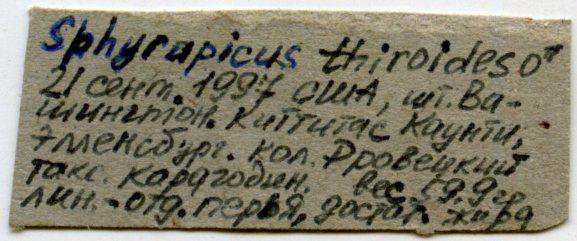 Sphyrapicus thiroides ♂
21 сент. 1997 США, шт. Ва-
шингтон. Киттитас Каунти,
Элленсбург. кол. Дровецкий
такс. Кардгодин. вес 59.9 гр
лин. - отд. перья, достат. жира